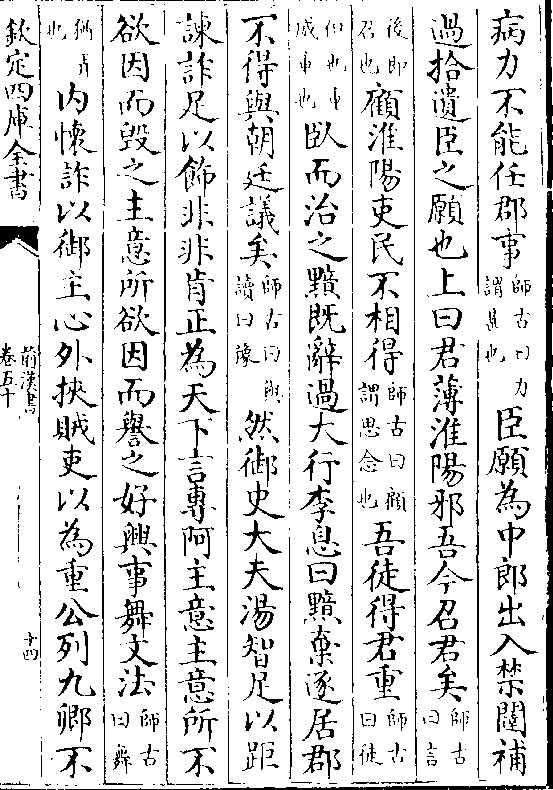 病力不能任郡事師古曰力謂甚也臣願為中郎出入禁闥補
過拾遺臣之願也上曰君薄淮陽邪吾今召君矣師古曰言
後即召也顧淮陽吏民不相得師古曰顧謂思念也吾徒得君重師古曰徒
但也重威重也臥而治之黯既辭過大行李息曰黯棄逐居郡
不得與朝廷議矣師古曰與讀曰豫然御史大夫湯智足以距
諫詐足以飾非非肯正為天下言專阿主意主意所不
欲因而毀之主意所欲因而譽之好興事舞文法師古曰舞
猶弄也内懷詐以御主心外挾賊吏以為重公列九卿不
欽定四庫全書
前漢書
卷五十
十四